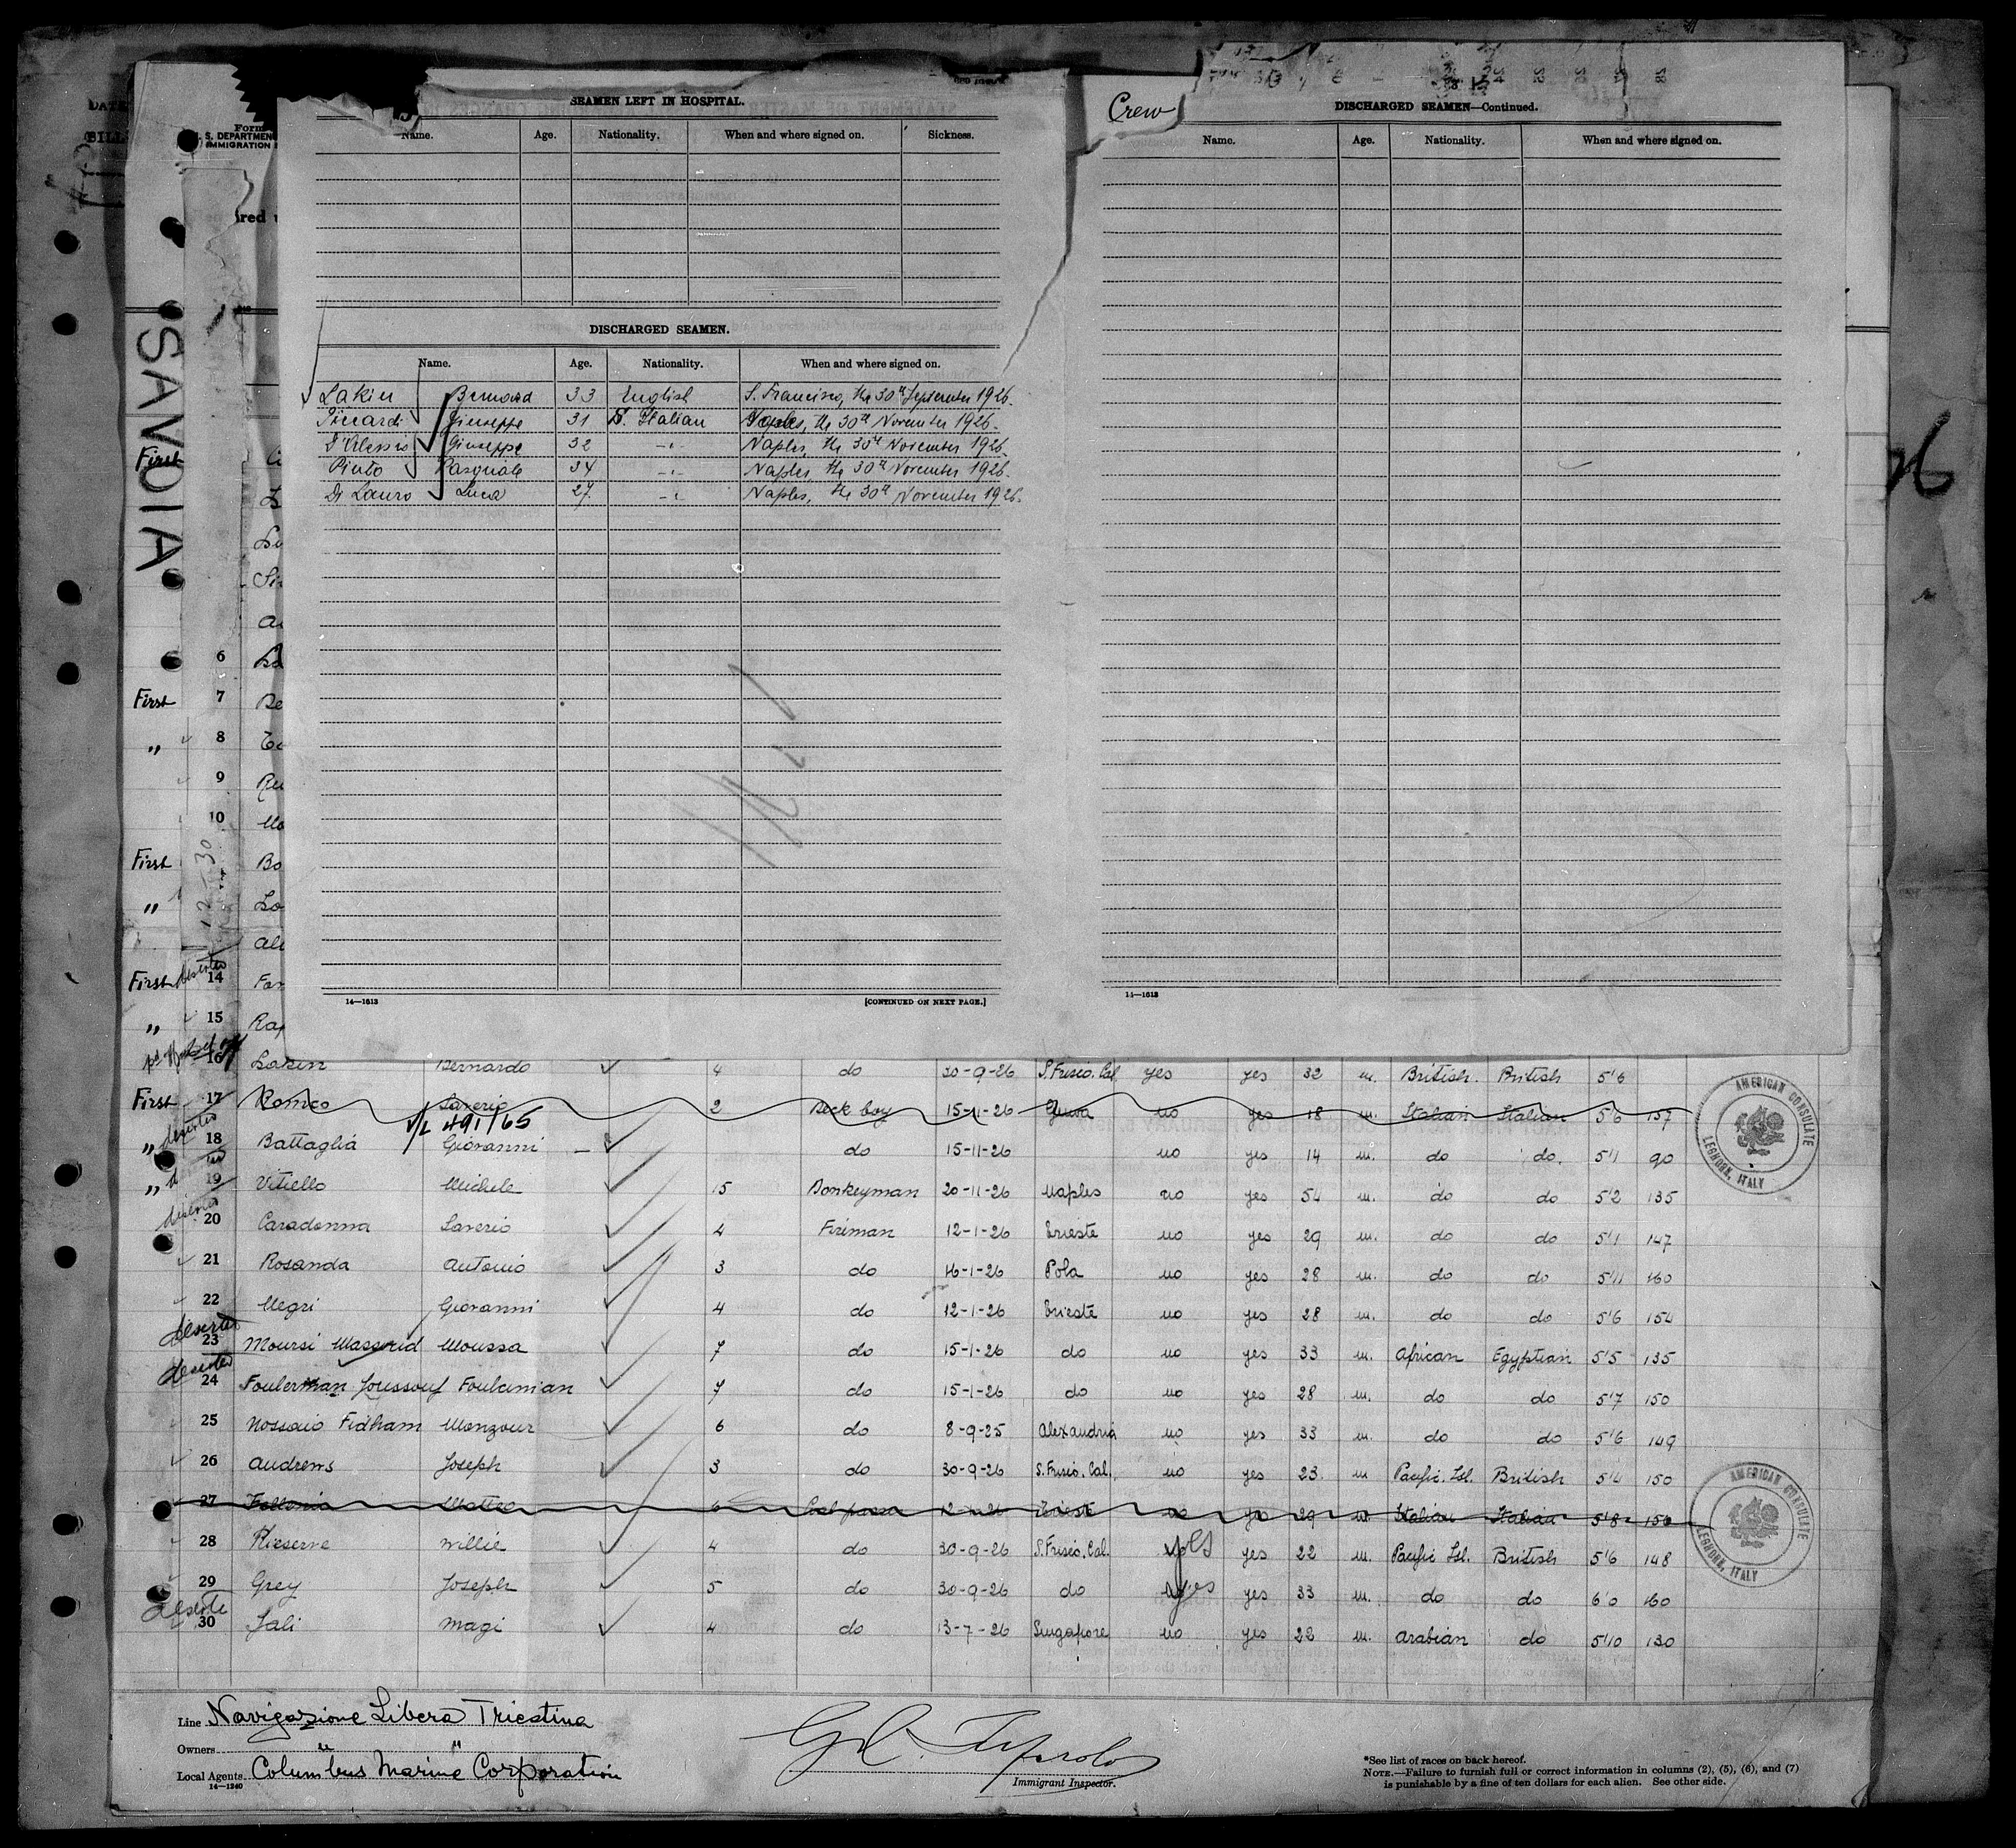 SEAMEN LEFT IN HOSPITAL.
Name. Age. Nationality. When and where signed on. Sickness.
DISCHARGED SEAMEN.
Name. Age. Nationality. When and where signed on.
Lakin Bernard 33 English S. Francisco, the 30th September 1926.
Piccardi Giuseppe 31 S. Italian Naples, the 30th November 1926.
D'Alessio Giuseppe 32 -"- Naples, the 30th November 1926.
Pinto Pasquale 34 -"- Naples, the 30th November 1926.
Di Lauro Luca 27 -"- Naples, the 30th November 1926.
14—1613
[CONTINUED ON NEXT PAGE.]
Crew
DISCHARGED SEAMEN—Continued.
Name. Age. Nationality. When and where signed on.
14—1613
DATE
BILL
Form
S. DEPARTMENT
IMMIGRATION
red
SANDIA
26
First
6
First 7 Be
" 8
9
10
First Bo
" Lo
First deserted 14
" 15 Rap
16 Lakin Bernardo 4 do 30-9-26 S. Frisco. Cal yes yes 32 m. British. British 5'6
First 17 Romeo Saverio 2 Deck boy 15-11-26 Genva no yes 18 m. Italian Italian 5'6 157
V/L 491/65
" deserted 18 Battaglia Giovanni do 15-11-26 no yes 14 m. do do. 5'1 90
" 19 Vitiello Michele 15 Donkeyman 20-11-26 Naples no yes 54 m. do do 5'2 135
deserted 20 Caradonna Saverio 4 Fireman 12-1-26 Trieste no yes 29 m. do do 5'1 147
21 Rosanda Antonio 3 do 16-1-26 Pola no yes 28 m. do do 5'11 160
22 Negri Giovanni 4 do 12-1-26 Trieste no yes 28 m. do do 5'6 154
deserted 23 Moursi Massoud Moussa 7 do 15-1-26 do no yes 33 m. African Egyptian 5'5 135
deserted 24 Foulerman Joussouf Foulemian 7 do 15-1-26 do no yes 28 m. do do 5'7 150
25 Nossaio Fidham Monzour 6 do 8-9-25 Alexandria no yes 33 m. do do 5'6 149
26 Andrews Joseph 3 do 30-9-26 S. Frisco. Cal. no yes 23. m Pacific. Isl. British 5'4 150
27 Matteo Coal passer Trieste no yes 29 m. Italian Italian 5'8 150
28 Willie 4 do 30-9-26 S. Frisco. Cal. yes yes 22 m. Pacific Isl. British 5'6 148
29 Grey Joseph 5 do 30-9-26 do yes yes 33 m. do do 6'0 160
deserte 30 Jali Magi 4 do 13-7-26 Singapore no yes 28 m. Arabian do 5'10 130
AMERICAN CONSULATE
LEGHORN, ITALY
AMERICAN CONSULATE
LEGHORN, ITALY
Line Navigazione Libera Triestina
Owners " "
Local Agents Columbus Marine Corporation
14—1240
Immigrant Inspector.
*See list of races on back hereof.
NOTE.—Failure to furnish full or correct information in columns (2), (5), (6), and (7)
is punishable by a fine of ten dollars for each alien. See other side.